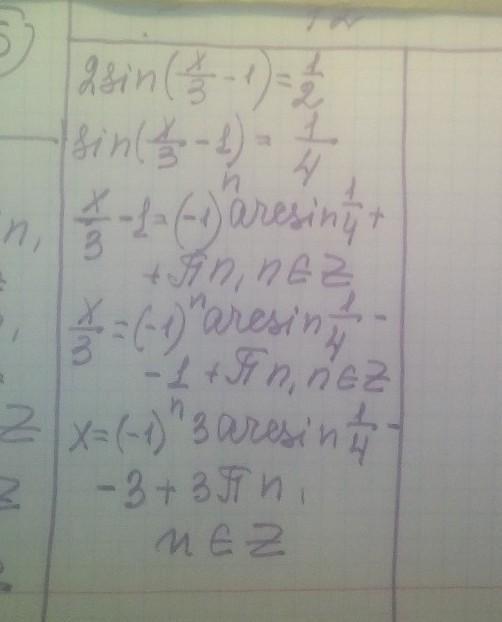 5)
2sin(x/3 - 1) = 1/2
sin(x/3 - 1) = 1/4
x/3 - 1 = (-1)^n arcsin 1/4 +
+ πn, n ∈ Z
x/3 = (-1)^n arcsin 1/4 -
- 1 + πn, n ∈ Z
x = (-1)^n 3 arcsin 1/4 -
- 3 + 3πn,
n ∈ Z
n,
Z